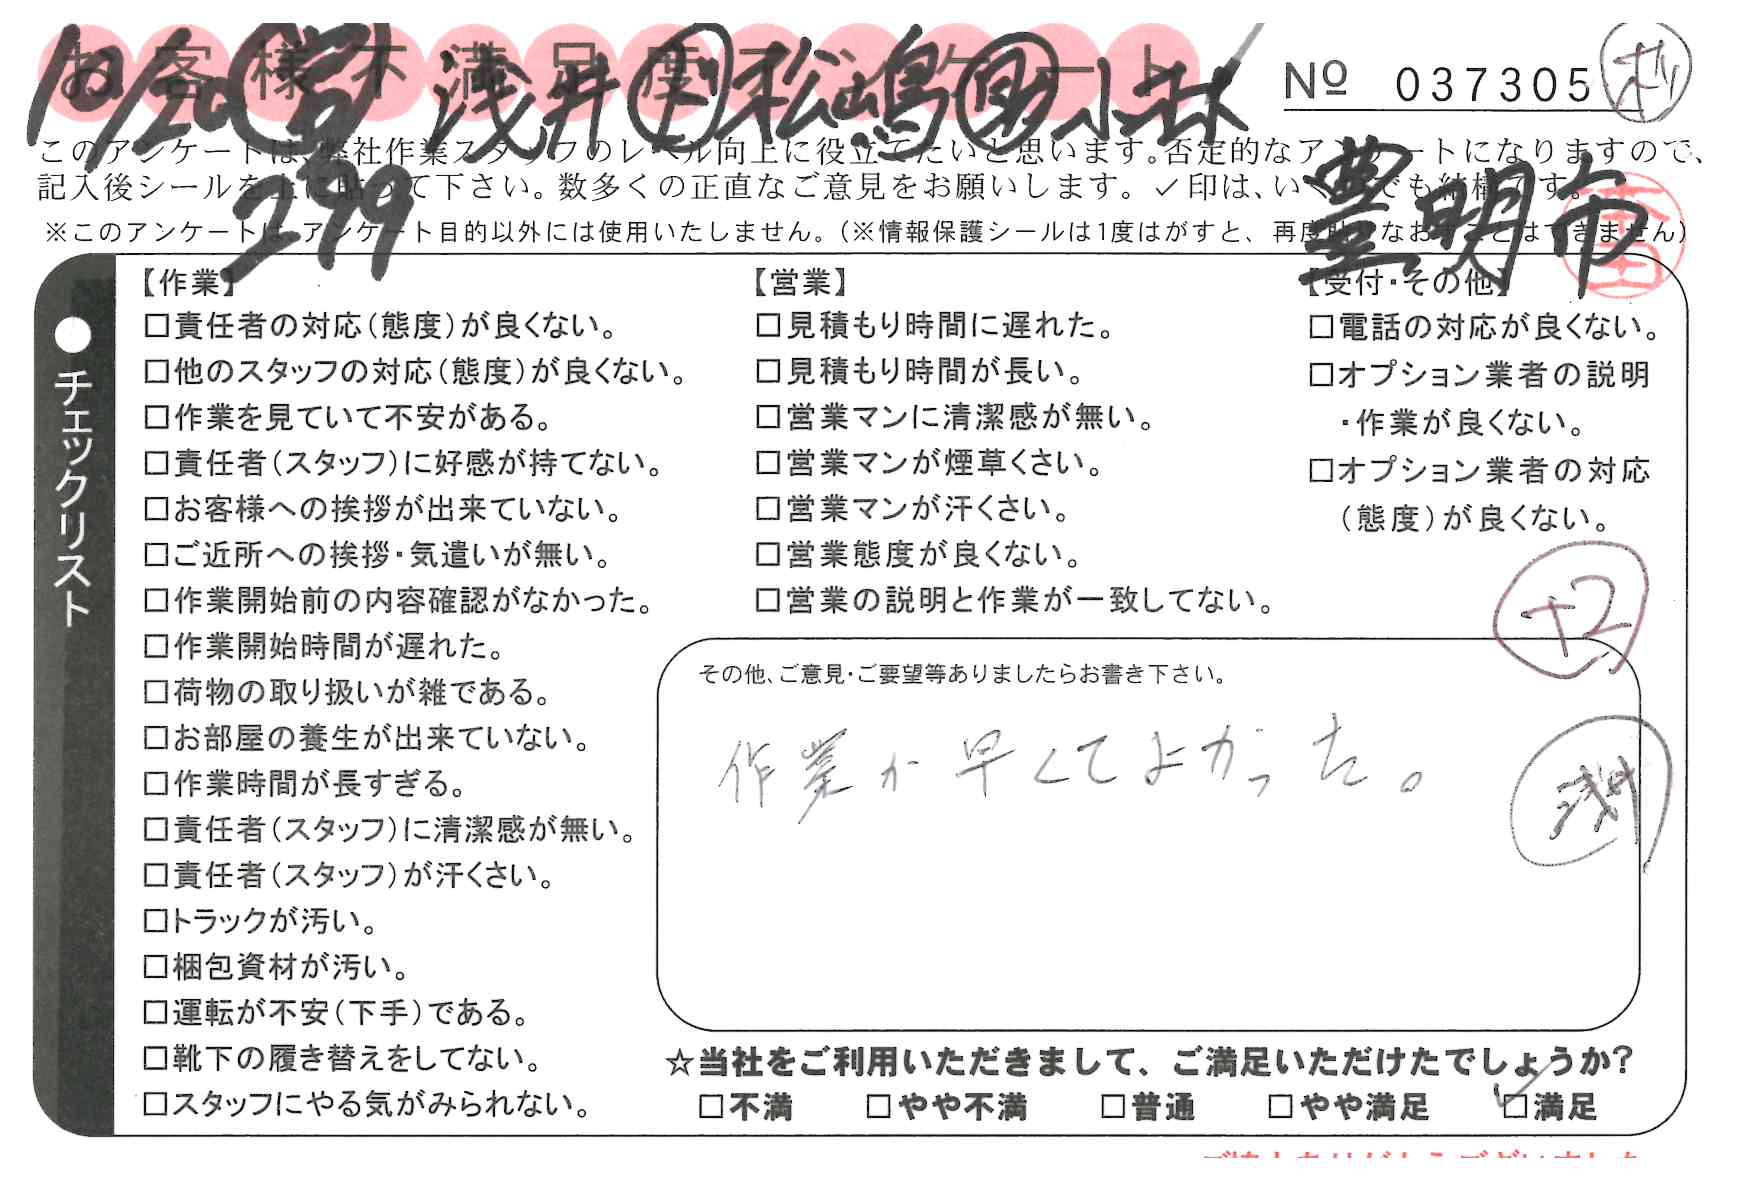 お客様不満足度アンケート
10/20 浅井 松嶋 小林
№ 037305
このアンケートは、弊社作業スタッフのレベル向上に役立てたいと思います。否定的なアンケートになりますので、
記入後シールを上に貼って下さい。数多くの正直なご意見をお願いします。✓印は、いくつでも結構です。
279
豊明市
※このアンケートは、アンケート目的以外には使用いたしません。(※情報保護シールは1度はがすと、再度貼りなおすことはできません)
●チェックリスト
【作業】
□責任者の対応(態度)が良くない。
□他のスタッフの対応(態度)が良くない。
□作業を見ていて不安がある。
□責任者(スタッフ)に好感が持てない。
□お客様への挨拶が出来ていない。
□ご近所への挨拶・気遣いが無い。
□作業開始前の内容確認がなかった。
□作業開始時間が遅れた。
□荷物の取り扱いが雑である。
□お部屋の養生が出来ていない。
□作業時間が長すぎる。
□責任者(スタッフ)に清潔感が無い。
□責任者(スタッフ)が汗くさい。
□トラックが汚い。
□梱包資材が汚い。
□運転が不安(下手)である。
□靴下の履き替えをしてない。
□スタッフにやる気がみられない。
【営業】
□見積もり時間に遅れた。
□見積もり時間が長い。
□営業マンに清潔感が無い。
□営業マンが煙草くさい。
□営業マンが汗くさい。
□営業態度が良くない。
□営業の説明と作業が一致してない。
【受付・その他】
□電話の対応が良くない。
□オプション業者の説明
・作業が良くない。
□オプション業者の対応
(態度)が良くない。
+2
その他、ご意見・ご要望等ありましたらお書き下さい。
作業が早くてよかった。
浅井
☆当社をご利用いただきまして、ご満足いただけたでしょうか?
□不満 □やや不満 □普通 □やや満足 ☑満足